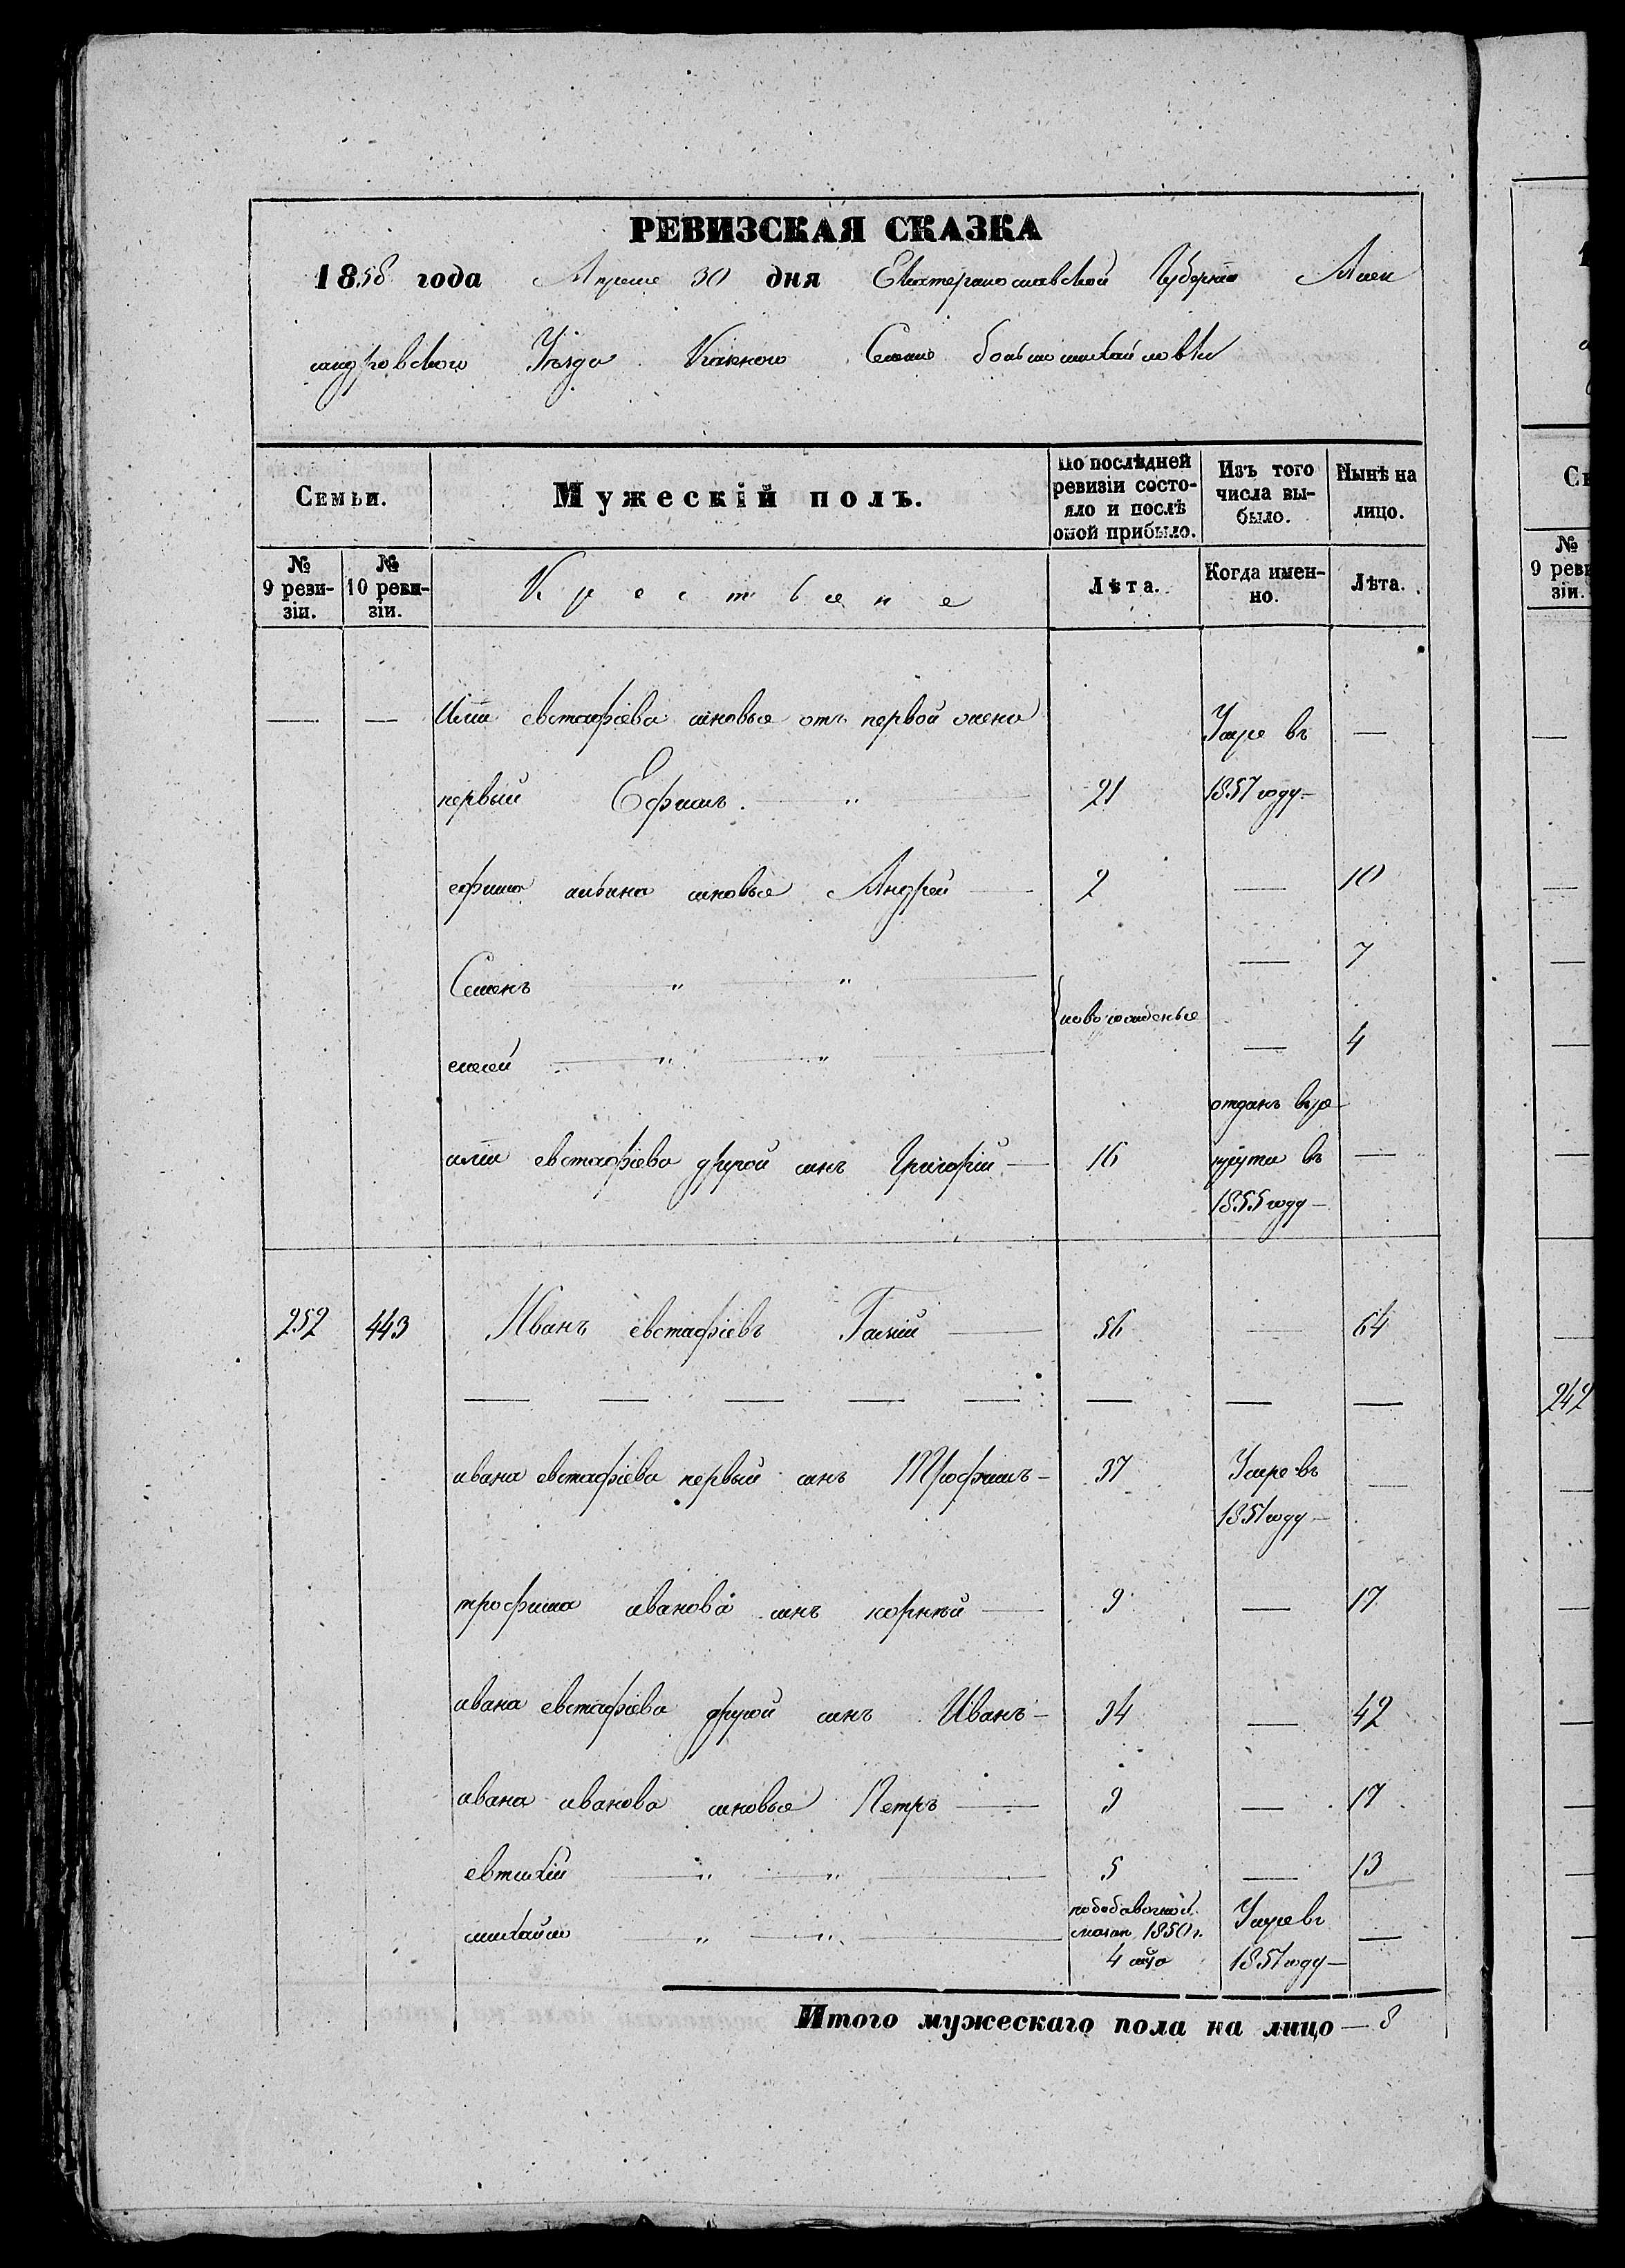 РЕВИЗСКАЯ СКАЗКА
1858 года Апреля 30 дня Екатеринославской Губернiи Алек
сандровскаго Уѣзда Казенного Селенiя большемихайловки
Семьи.
Мужескiй полъ.
По послѣдней ревизiи состо-
яло и послѣ
оной прибыло.
Изъ того
числа вы-
было.
Нынѣ на
лицо.
№
9 реви-
зiи.
№
10 реви-
зiи.
Крестьяне
Лѣта.
Когда имен-
но.
Лѣта.
— — Илiи евстафiева сыновья отъ первой жены Умре въ —
первый Ефимъ. — " — 21 1857 году —
ефима ильина сыновья Андрей — 2 — 10
Семенъ — " — " — — 7
новорожденые
елисей — " — " — — 4
отданъ въ ре
илiи евстафiева другой сынъ Григорiй — 16 круты въ —
1855 году —
252 443 Иванъ евстафiевъ — 56 — 64
— — — — — — — —
ивана евстафiева первый сынъ Трофимъ — 37 Умре въ —
1851 году —
трофима иванова сынъ корнѣй — 9 — 17
ивана евстафiева другой сынъ Иванъ — 34 — 42
ивана иванова сыновья Петръ — 9 — 17
евтихiй — " — " — 5 — 13
михайло — " — " — подобавочной Умре въ —
сказки 1850 г. 1851 году —
4
Итого мужескаго пола на лицо — 8
С
№
9 реви
зiи.
242